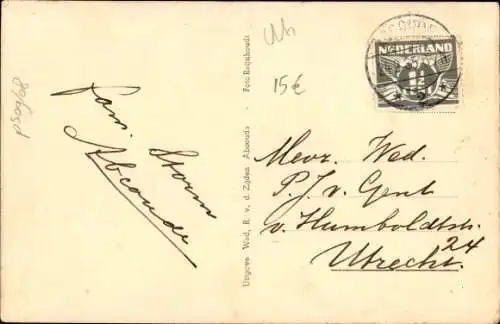 fam. Storm
Abcoude
Uitgave Wed. R. v. d. Zijden Abcoude - Foto Reijnhoudt
15€
NEDERLAND
1½
2
Mevr. Wed.
P. J. v. Gent
v. Humboldtstr.
24
Utrecht.